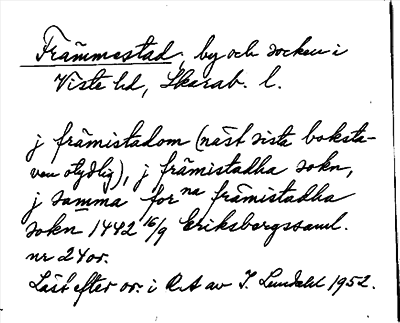 Främmestad, by och socken i
Viste hd, Skarab. l.
j främistadom (näst sista boksta-
ven otydlig), j främistadha sokn,
j samma for na främistadha
sokn 1442 16/9 Eriksbergssaml.
nr 24 or.
Läst efter or. i RA av I. Lundahl 1952.